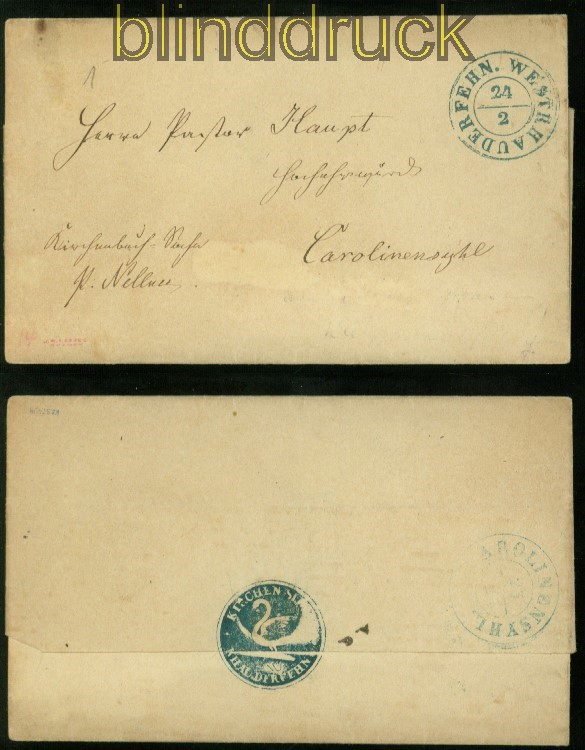 blinddruck
WESTRHAUDERFEHN.
24
2
1
Herrn Pastor Haupt
Hochehrwürd
Carolinensyhl
Kirchenbuch-Sache
P. Nellner.
KIRCHEN
RHAUDERFEHN
CAROLINENSYHL.